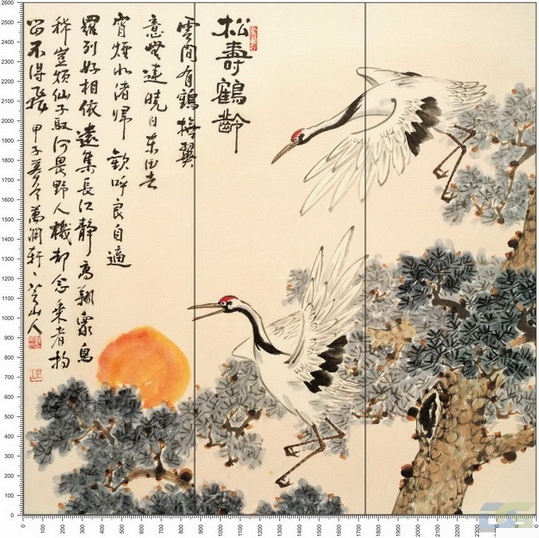 松壽鶴齡
雲間有鶴撫翼
意無違曉日東田去
宵煙北渚歸 歡呼良自適
羅列好相依遠集長江靜高翔衆鳥
稀豈煩仙子馭何畏野人機却念乘者拘
留不得飛 甲子 山人
2600
2500
2400
2300
2200
2100
2000
1900
1800
1700
1600
1500
1400
1300
1200
1100
1000
900
800
700
600
500
400
300
200
100
0
0 100 200 300 400 500 600 700 800 900 1000 1100 1200 1300 1400 1500 1600 1700 1800 1900 2000 2100 2200 2300